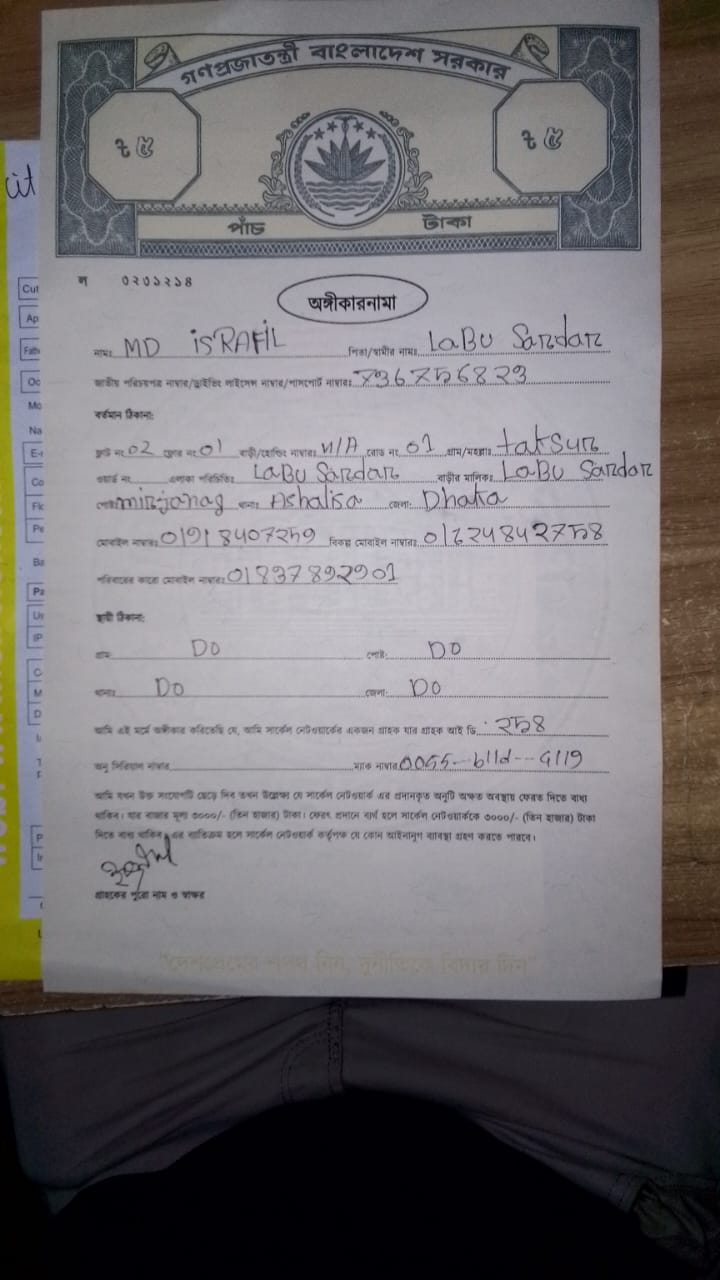 গণপ্রজাতন্ত্রী বাংলাদেশ সরকার
৳ ৫ ৳ ৫
পাঁচ টাকা
ল ০২০১২১৪
অঙ্গীকারনামা
নামঃ MD iSRAFIL পিতা/স্বামীর নামঃ LaBU Sardar
জাতীয় পরিচয়পত্র নাম্বার/ড্রাইভিং লাইসেন্স নাম্বার/পাসপোর্ট নাম্বারঃ
বর্তমান ঠিকানা:
ফ্লাট নং 02 ফ্লোর নং 01 বাড়ী/হোল্ডিং নাম্বারঃ N/A রোড নং 01 গ্রাম/মহল্লাঃ taksur
ওয়ার্ড নং এলাকা পরিচিতিঃ LaBU Sardar বাড়ীর মালিকঃ LaBU Sardar
পোষ্টঃ mirjanag থানাঃ Ashalisa জেলা: Dhaka
মোবাইল নাম্বারঃ বিকল্প মোবাইল নাম্বারঃ
পরিবারের কারো মোবাইল নাম্বারঃ 01837892901
স্থায়ী ঠিকানা:
গ্রাম DO পোষ্ট: DO
থানাঃ DO জেলা: DO
আমি এই মর্মে অঙ্গীকার করিতেছি যে, আমি সার্কেল নেটওয়ার্কের একজন গ্রাহক যার গ্রাহক আই ডি
অনু সিরিয়াল নাম্বার ম্যাক নাম্বার
আমি যখন উক্ত সংযোগটি ছেড়ে দিব তখন উল্লেক্ষ্য যে সার্কেল নেটওয়ার্ক এর প্রদানকৃত অনুটি অক্ষত অবস্থায় ফেরত দিতে বাধ্য
থাকিব। যার বাজার মূল্য ৩০০০/- (তিন হাজার) টাকা। ফেরৎ প্রদানে ব্যর্থ হলে সার্কেল নেটওয়ার্ককে ৩০০০/- (তিন হাজার) টাকা
দিতে বাধ্য থাকিব। এর ব্যতিক্রম হলে সার্কেল নেটওয়ার্ক কর্তৃপক্ষ যে কোন আইনানুগ ব্যবস্থা গ্রহণ করতে পারবে।
গ্রাহকের পুরো নাম ও স্বাক্ষর
"দেশপ্রেমের শপথ নিন, দুর্নীতিকে বিদায় দিন"